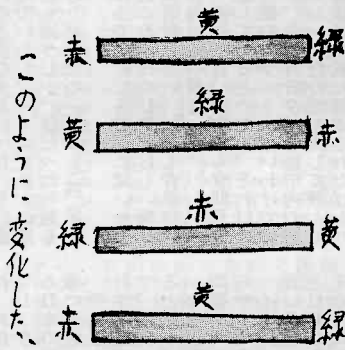 黄
赤 緑
緑
黄 赤
赤
緑 黄
黄
赤 緑
このように変化した、